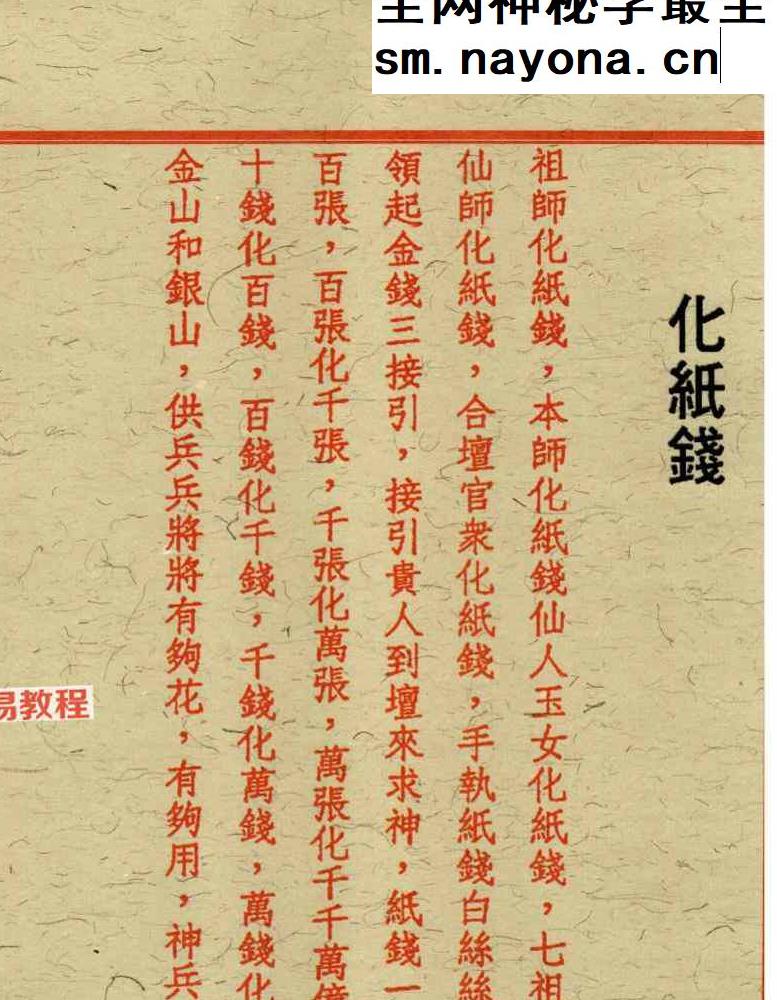 全网神秘学最全
sm.nayona.cn
化紙錢
祖師化紙錢，本師化紙錢仙人玉女化紙錢，七祖
仙師化紙錢，合壇官衆化紙錢，手執紙錢白絲絲
領起金錢三接引，接引貴人到壇來求神，紙錢一
百張，百張化千張，千張化萬張，萬張化千千萬億
十錢化百錢，百錢化千錢，千錢化萬錢，萬錢化
金山和銀山，供兵兵將將有夠花，有夠用，神兵
易教程